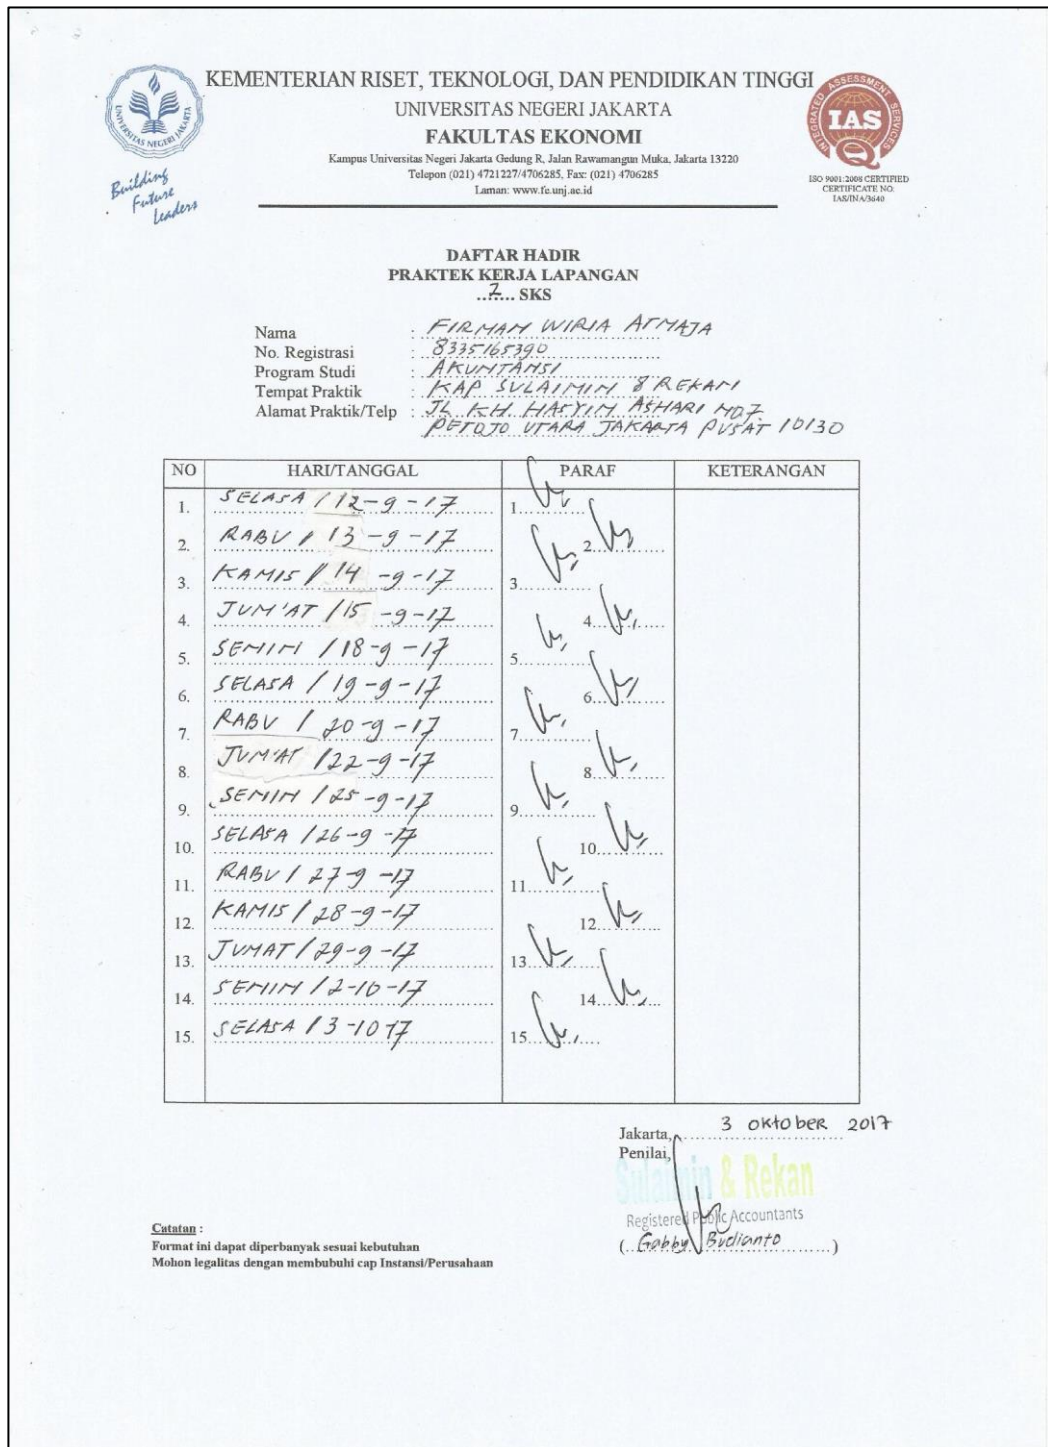 KEMENTERIAN RISET, TEKNOLOGI, DAN PENDIDIKAN TINGGI
UNIVERSITAS NEGERI JAKARTA
FAKULTAS EKONOMI
Kampus Universitas Negeri Jakarta Gedung R, Jalan Rawamangun Muka, Jakarta 13220
Telepon (021) 4721227/4706285, Fax: (021) 4706285
Laman: www.fe.unj.ac.id
UNIVERSITAS NEGERI JAKARTA
Building
Future
Leaders
INTEGRATED ASSESSMENT SERVICES
IAS
ISO 9001:2008 CERTIFIED
CERTIFICATE NO:
IAS/INA/3640
DAFTAR HADIR
PRAKTEK KERJA LAPANGAN
..2.... SKS
Nama : FIRMAN WIRIA ATMAJA
No. Registrasi : 8335165390
Program Studi : AKUNTANSI
Tempat Praktik : KAP SULAIMIN & REKAN
Alamat Praktik/Telp : JL. KH. HASYIM ASHARI NO7
PETOJO UTARA JAKARTA PUSAT 10130
NO HARI/TANGGAL PARAF KETERANGAN
1. SELASA / 12-9-17 1
2. RABU / 13-9-17 2
3. KAMIS / 14-9-17 3
4. JUM'AT / 15-9-17 4
5. SENIN / 18-9-17 5
6. SELASA / 19-9-17 6
7. RABU / 20-9-17 7
8. JUM'AT / 22-9-17 8
9. SENIN / 25-9-17 9
10. SELASA / 26-9-17 10
11. RABU / 27-9-17 11
12. KAMIS / 28-9-17 12
13. JUMAT / 29-9-17 13
14. SENIN / 2-10-17 14
15. SELASA / 3-10 17 15
Jakarta, 3 Oktober 2017
Penilai,
Sulaimin & Rekan
Registered Public Accountants
(Gabby Budianto)
Catatan :
Format ini dapat diperbanyak sesuai kebutuhan
Mohon legalitas dengan membubuhi cap Instansi/Perusahaan